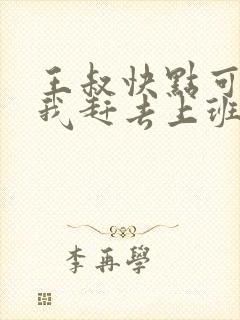 王叔快點可
我赶去上班
李再學